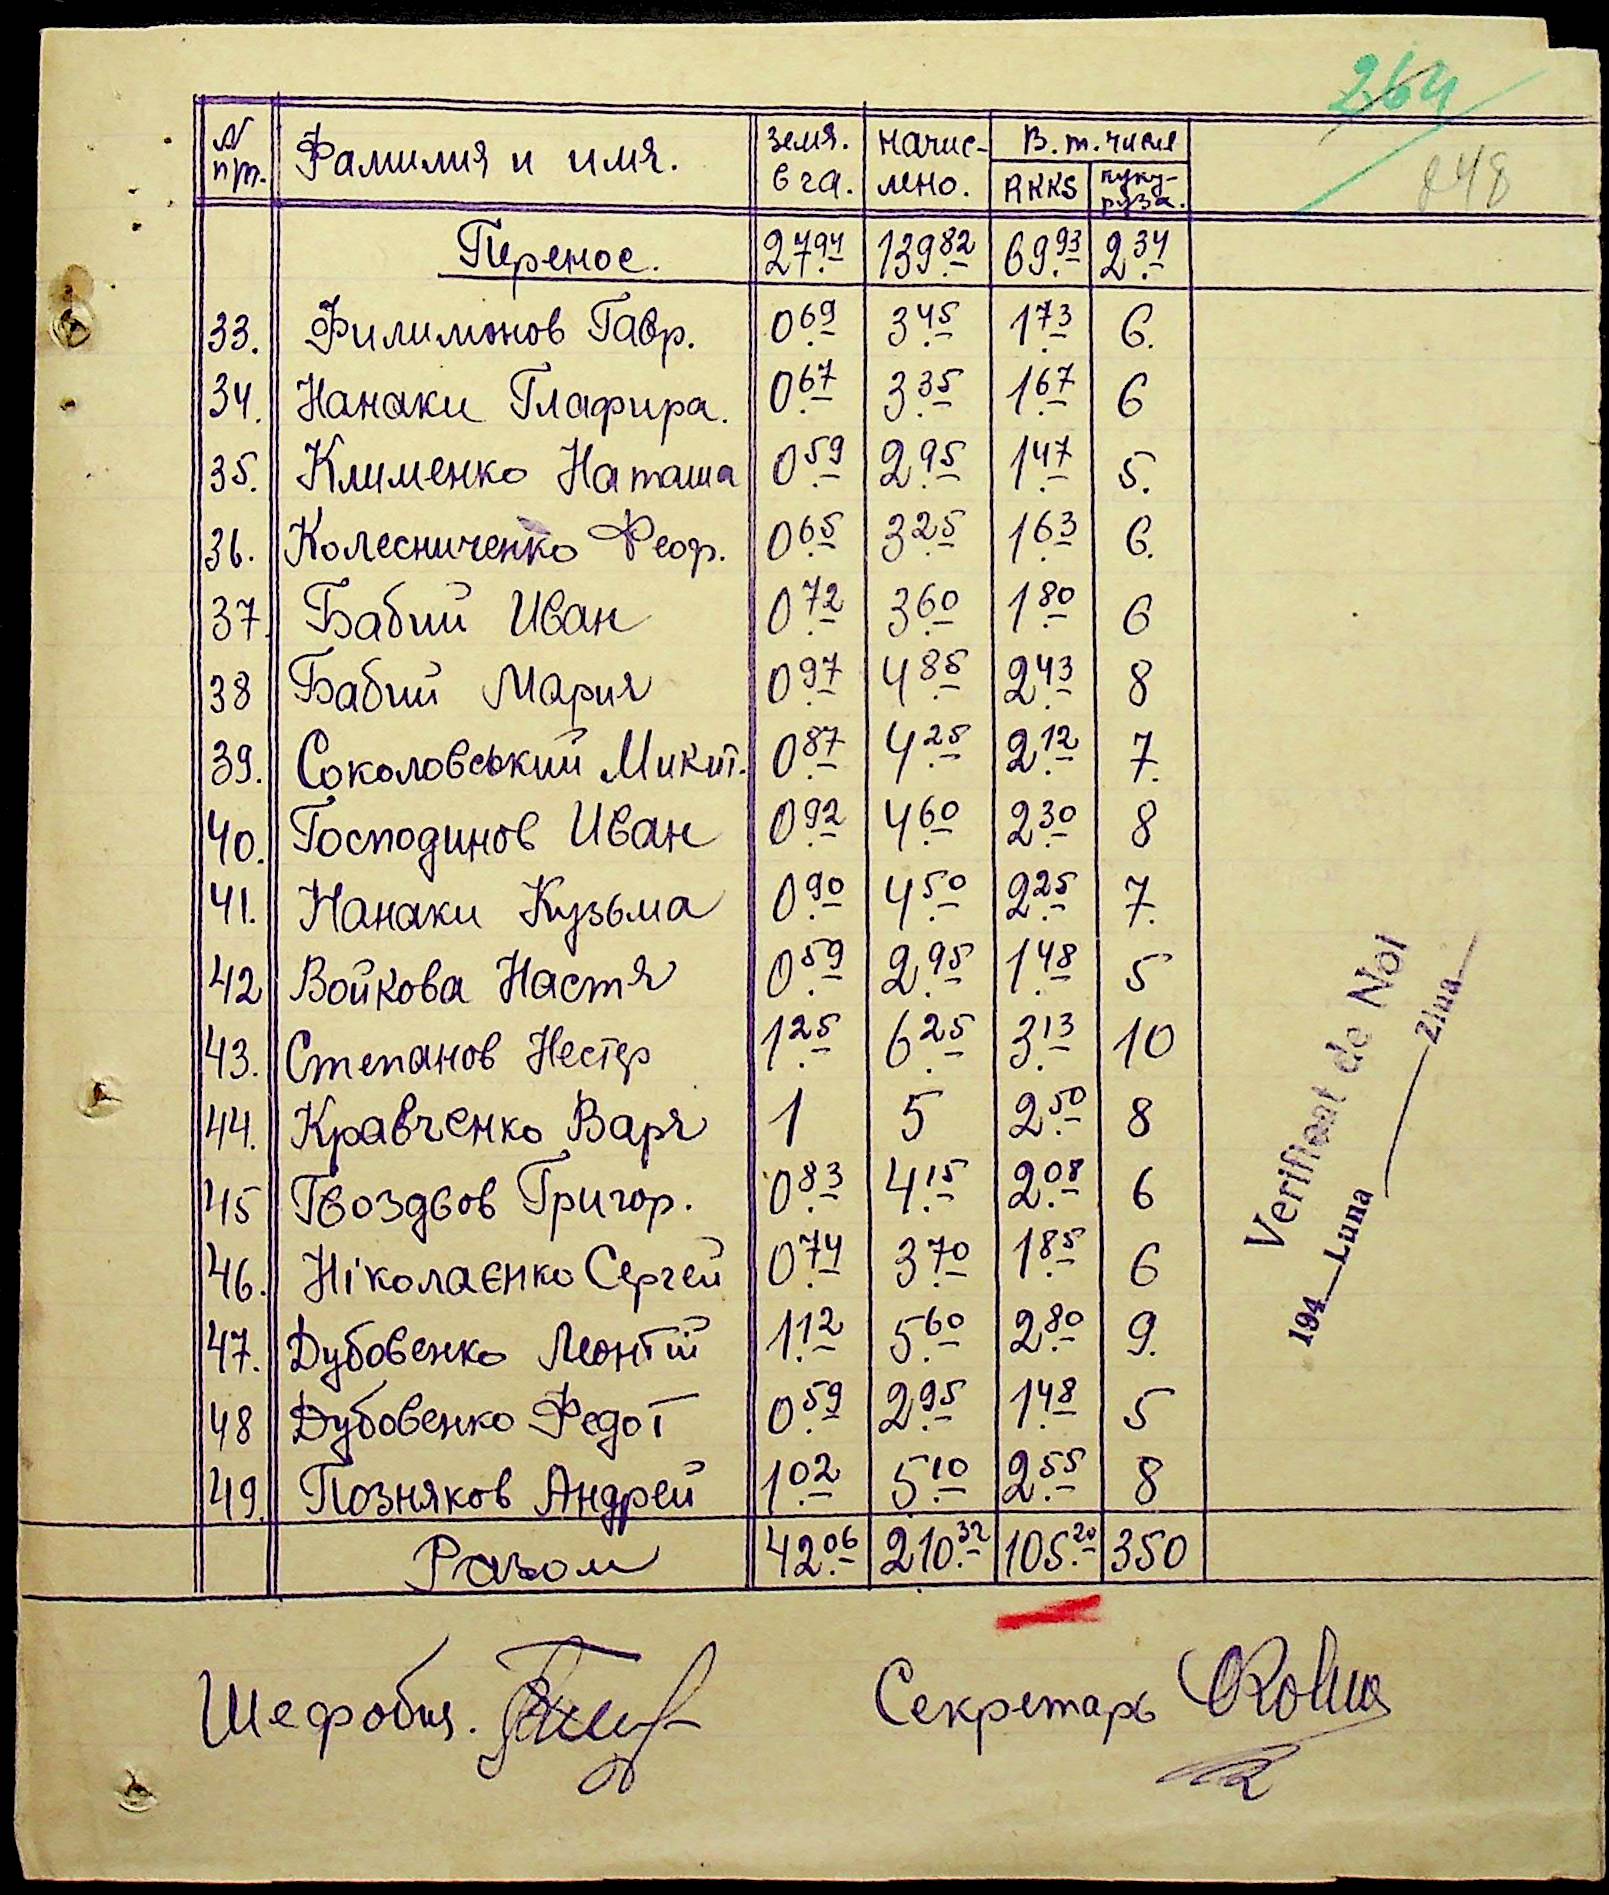 264
848
N п/п. Фамилия и имя. земл. в га. начис-лено. В.т. числе
RKKS куку-руза.
Перенос. 27.94 139.82 69.93 2.34
33. Филимонов Гавр. 0.69 3.45 1.73 6.
34. Нанаки Глафира. 0.67 3.35 1.67 6
35. Клименко Наташа 0.59 2.95 1.47 5.
36. Колесниченко Феор. 0.65 3.25 1.63 6.
37. Бабий Иван 0.72 3.60 1.80 6
38 Бабий Мария 0.97 4.85 2.43 8
39. Соколовський Микит. 0.87 4.25 2.12 7.
40. Господинов Иван 0.92 4.60 2.30 8
41. Нанаки Кузьма 0.90 4.50 2.25 7.
42 Войкова Настя 0.59 2.95 1.48 5
43. Степанов Нестер 1.25 6.25 3.13 10
44. Кравченко Варя 1 5 2.50 8
45 Гвоздьов Григор. 0.83 4.15 2.08 6
46. Ніколаєнко Сергей 0.74 3.70 1.85 6
47. Дубовенко Леонтій 1.12 5.60 2.80 9.
48 Дубовенко Федот 0.59 2.95 1.48 5
49. Позняков Андрей 1.02 5.10 2.55 8
Разом 42.06 210.32 105.20 350
Verificat de Noi
194 Luna Ziua
Шефобщ. Секретарь